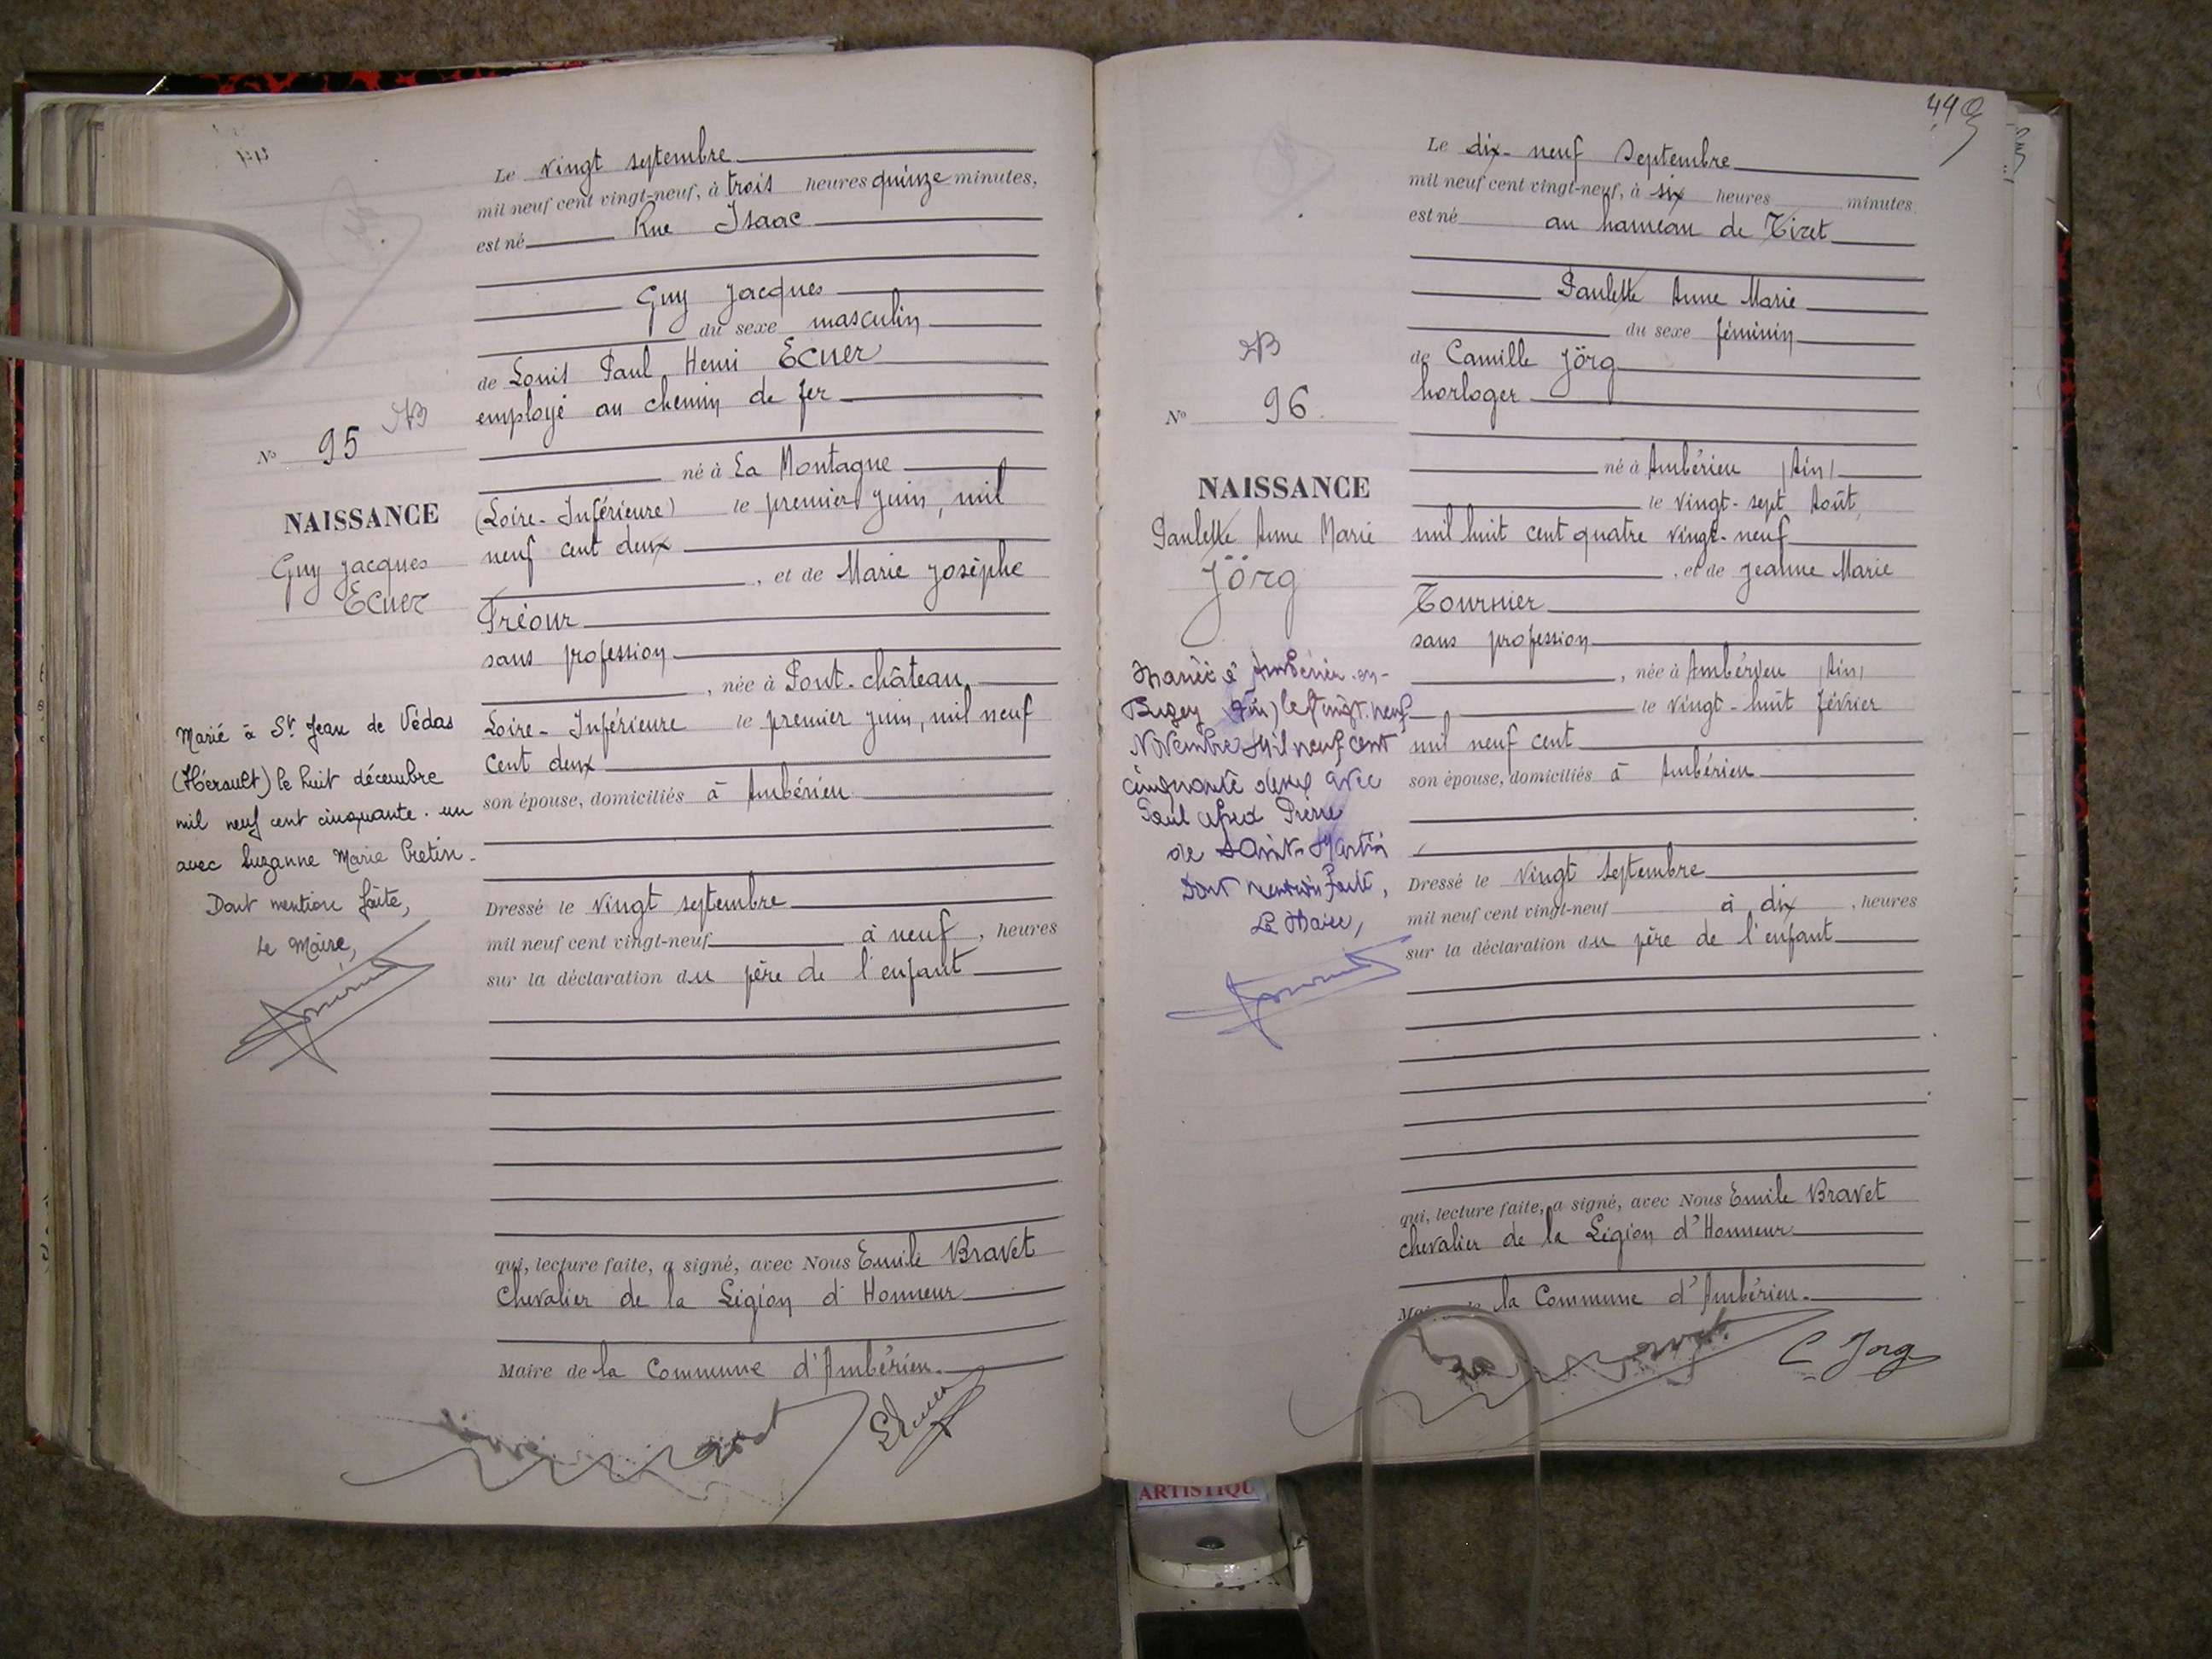 Le vingt septembre
mil neuf cent vingt-neuf, à trois heures quinze minutes,
est né Rue Isaac
Guy Jacques
du sexe masculin
de Louis Paul Henri Ecuer
employé au chemin de fer
né à La Montagne
(Loire-Inférieure) le premier juin, mil
neuf cent deux
, et de Marie Josèphe
Tréour
sans profession
, née à Pont-château,
Loire-Inférieure le premier juin, mil neuf
cent deux
son épouse, domiciliés à Ambérieu
Dressé le vingt septembre
mil neuf cent vingt-neuf à neuf, heures
sur la déclaration du père de l'enfant
qui, lecture faite, a signé, avec Nous Emile Bravet
Chevalier de la Légion d'Honneur
Maire de la Commune d'Ambérieu.
Nº 95
NAISSANCE
Guy Jacques
Ecuer
Marié à St Jean de Védas
(Hérault) le huit décembre
mil neuf cent cinquante-un
avec Suzanne Marie Cretin.
Dont mention faite,
Le Maire,
Le dix-neuf Septembre
mil neuf cent vingt-neuf, à six heures minutes
est né au hameau de Tiret
Paulette Anne Marie
du sexe féminin
de Camille Jörg
horloger
né à Ambérieu (Ain)
le vingt-sept Août,
mil huit cent quatre vingt-neuf
, et de Jeanne Marie
Tournier
sans profession
, née à Ambérieu (Ain)
le vingt-huit février
mil neuf cent
son épouse, domiciliés à Ambérieu
Dressé le vingt septembre
mil neuf cent vingt-neuf à dix, heures
sur la déclaration du père de l'enfant
qui, lecture faite, a signé, avec Nous Emile Bravet
chevalier de la Légion d'Honneur
la Commune d'Ambérieu.
C Jorg
Nº 96
NAISSANCE
Paulette Anne Marie
Jörg
Mariée à Ambérieu-en-
Bugey (Ain) le vingt-neuf
Novembre mil neuf cent
cinquante deux avec
Paul Pierre
de Saint-Martin
Dont mention faite,
Le Maire,
ARTISTIQU